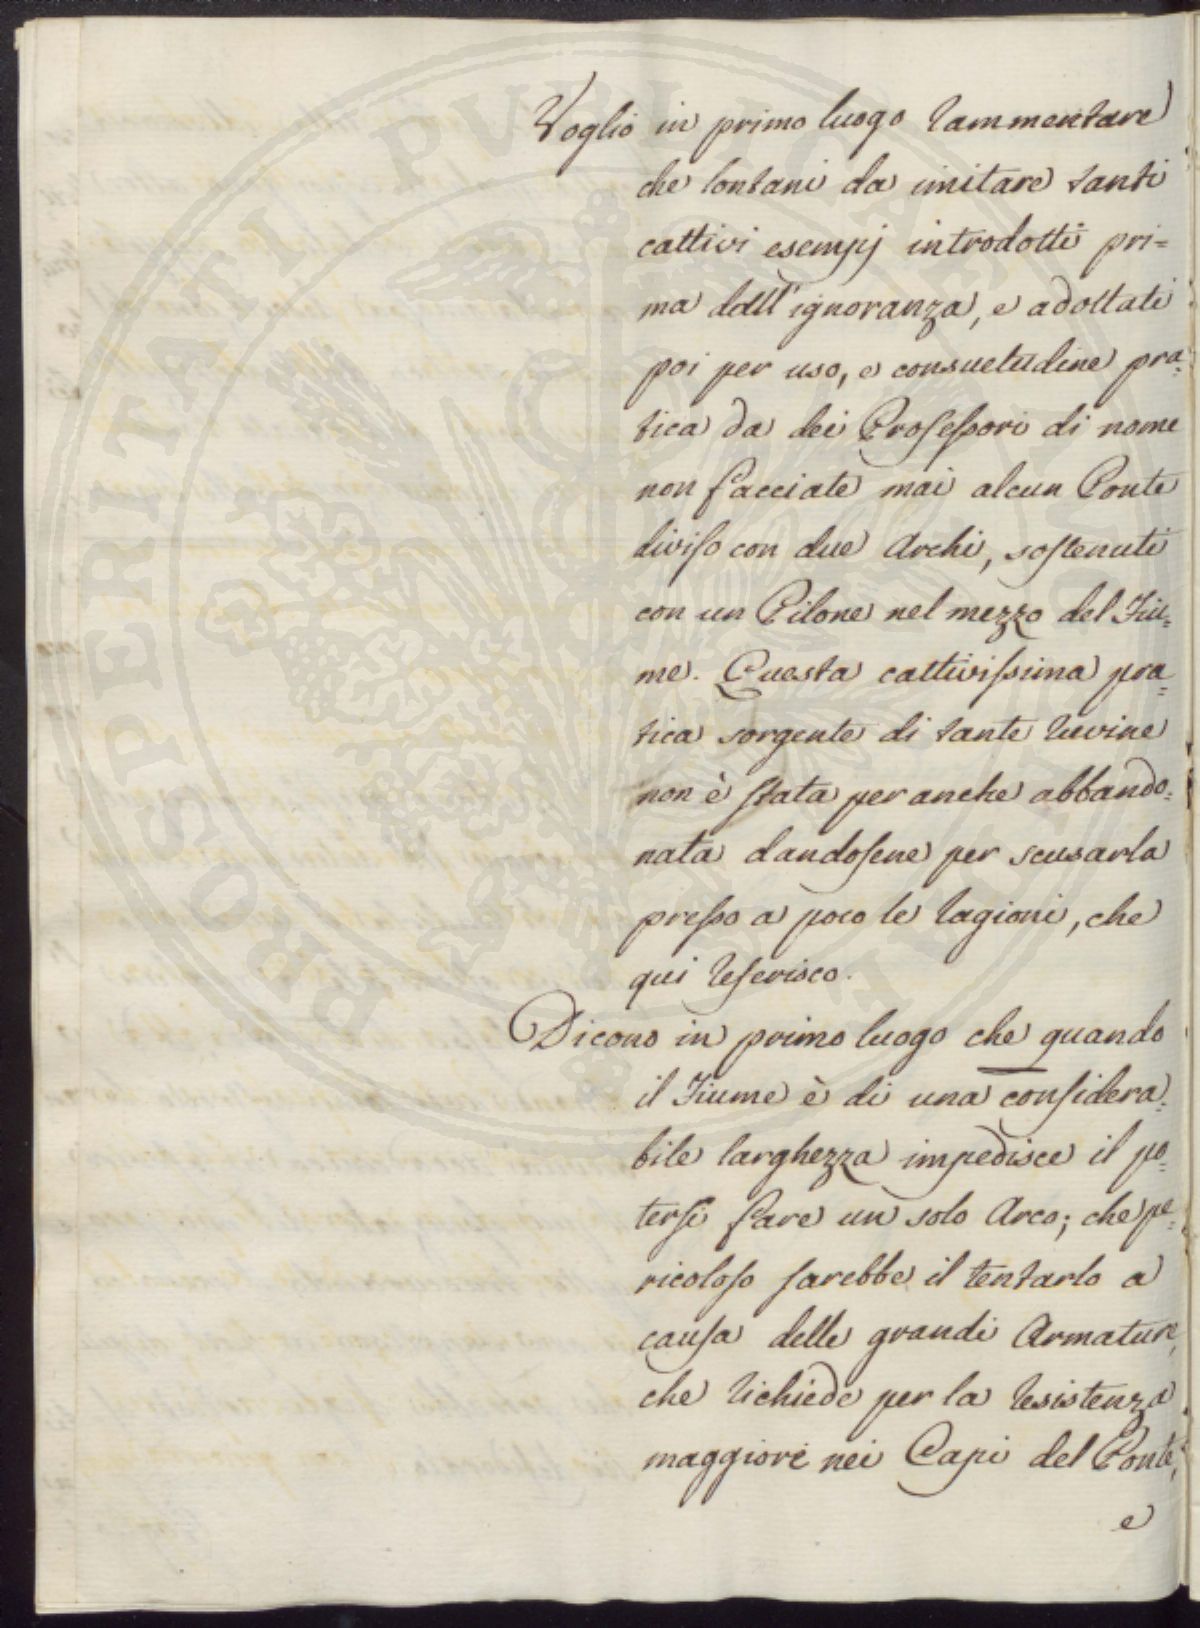 Voglio in primo luogo rammentare
che lontani da imitare tanti
cattivi esempj introdotti pri=
ma dall'ignoranza, e adottati
poi per uso, e consuetudine pra=
tica da dei Professori di nome
non facciate mai alcun Ponte
diviso con due Archi, sostenuti
con un Pilone nel mezzo del Fiu=
me. Questa cattivissima pra=
tica sorgente di tante ruvine
non è stata per anche abbando=
nata dandosene per scusarla
presso a poco le ragioni, che
qui referisco.
Dicono in primo luogo che quando
il Fiume è di una considera=
bile larghezza impedisce il po=
tersi fare un solo Arco; che pe=
ricoloso sarebbe il tentarlo a
causa delle grandi Armature,
che richiede per la resistenza
maggiore nei Capi del Ponte,
e
PROSPERITATI PVBLICAE